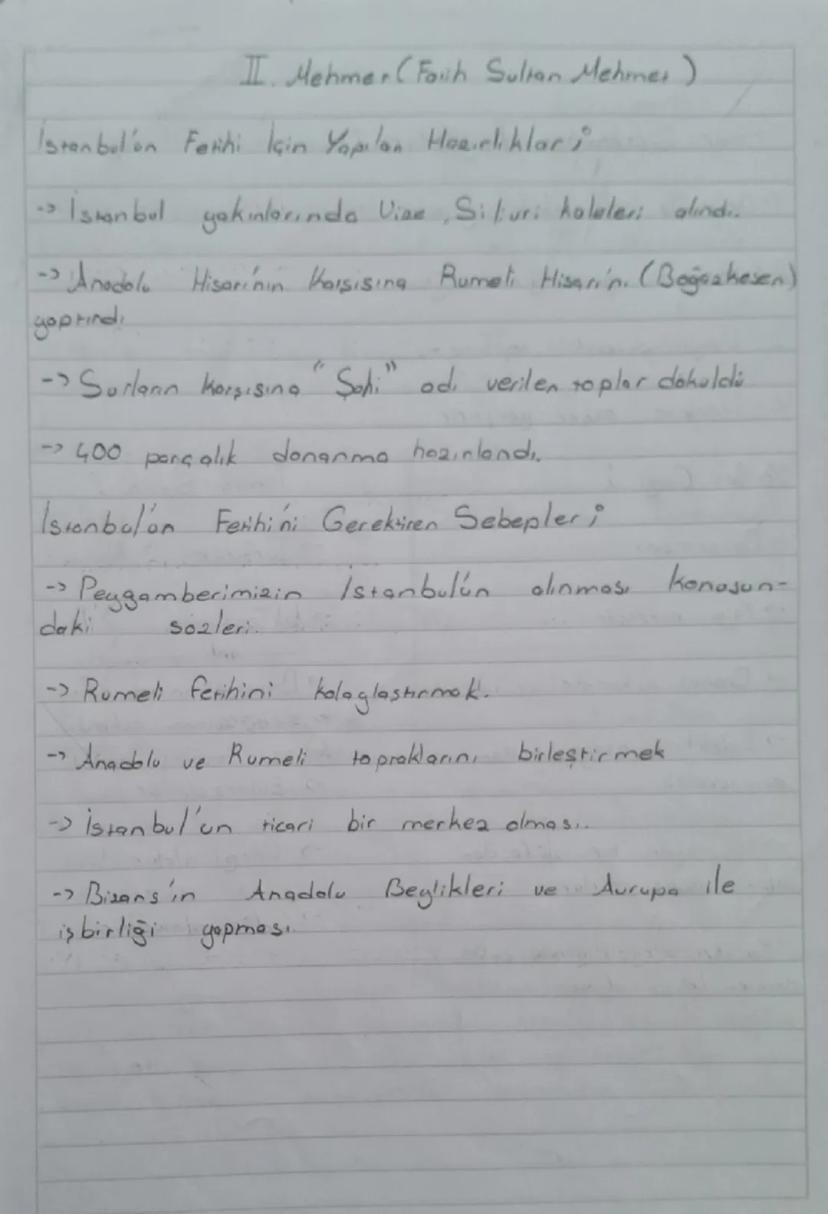 II. Mehmet (Fatih Sultan Mehmet)
İstanbul'un Fethi İçin Yapılan Hazırlıklar;
-> İstanbul yakınlarında Vize, Silivri kaleleri alındı.
-> Anadolu Hisarı'nın Karşısına Rumeli Hisarı'nı (Boğazkesen)
yaptırıldı
-> Surların karşısına "Şahi" adı verilen toplar döküldü
-> 400 parçalık donanma hazırlandı.
İstanbul'un Fethi'ni Gerektiren Sebepler;
-> Peygamberimizin İstanbul'un alınması konusun-
daki sözleri.
-> Rumeli fethini kolaylaştırmak.
-> Anadolu ve Rumeli topraklarını birleştirmek
-> İstanbul'un ticari bir merkez olması.
-> Bizans'ın Anadolu Beylikleri ve Avrupa ile
işbirliği yapması.